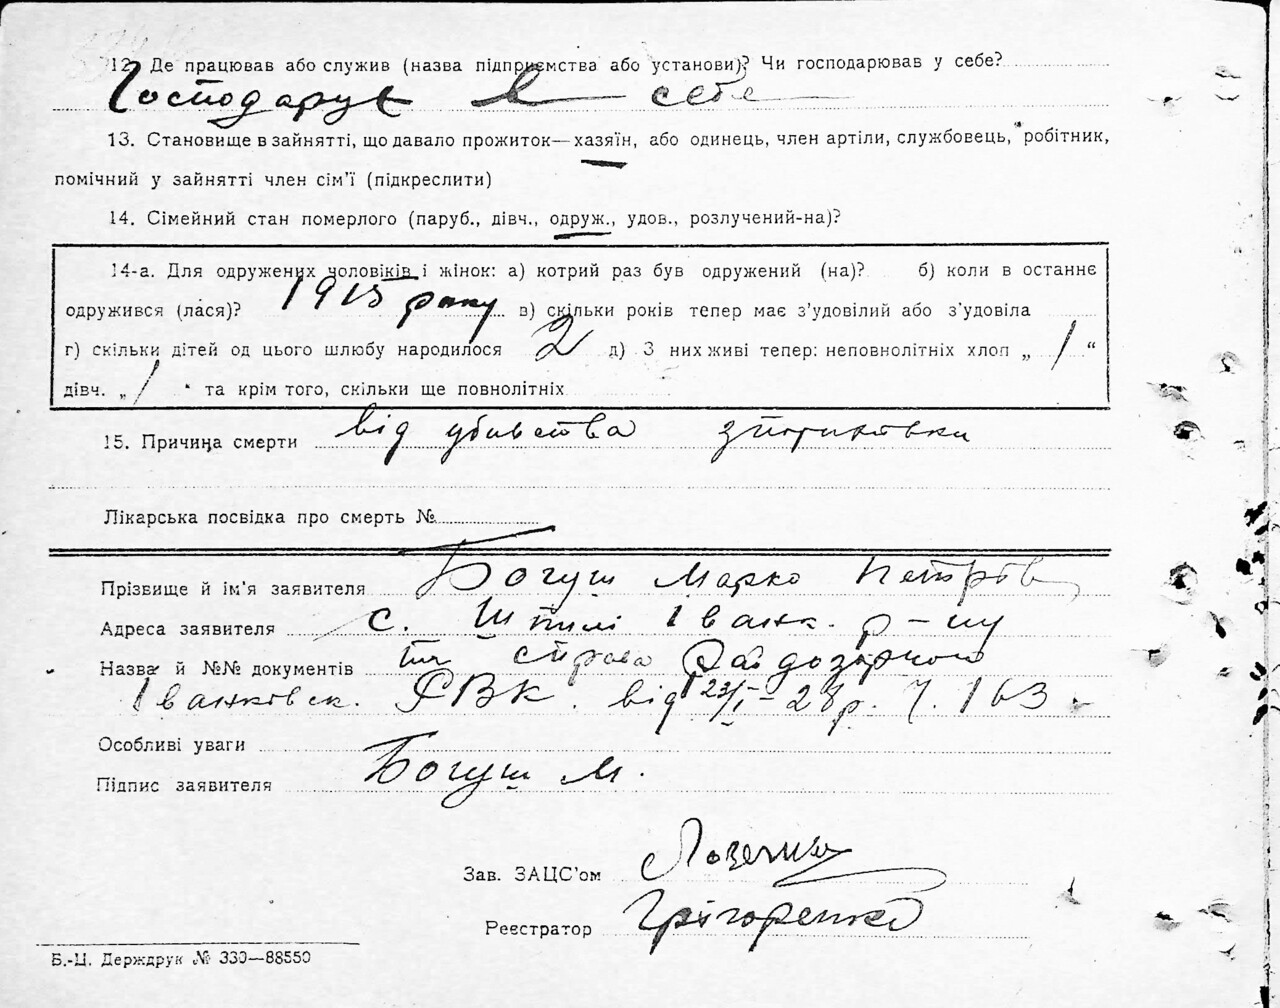 12. Де працював або служив (назва підприємства або установи)? Чи господарював у себе?
Господарув в себе
13. Становище в зайнятті, що давало прожиток—хазяїн, або одинець, член артіли, службовець, робітник,
помічний у зайнятті член сім'ї (підкреслити)
14. Сімейний стан померлого (паруб., дівч., одруж., удов., розлучений-на)?
14-а. Для одружених чоловіків і жінок: а) котрий раз був одружений (на)? б) коли в останнє
одружився (лася)? 1915 року в) скільки років тепер має з'удовілий або з'удовіла
г) скільки дітей од цього шлюбу народилося 2 д) З них живі тепер: неповнолітніх хлоп „ 1 “
дівч. „ 1 “ та крім того, скільки ще повнолітніх
15. Причина смерти від убивства
Лікарська посвідка про смерть №
Прізвище й ім'я заявителя Богуш Марко Петров
Адреса заявителя с. Шпилі Іванк. р-ну
Назва й №№ документів справа
Іванковск. РВК. від 23/I-28р. ч. 163
Особливі уваги
Підпис заявителя Богуш М.
Зав. ЗАЦС'ом
Реєстратор Григоренко
Б.-Ц. Держдрук № 330—88550